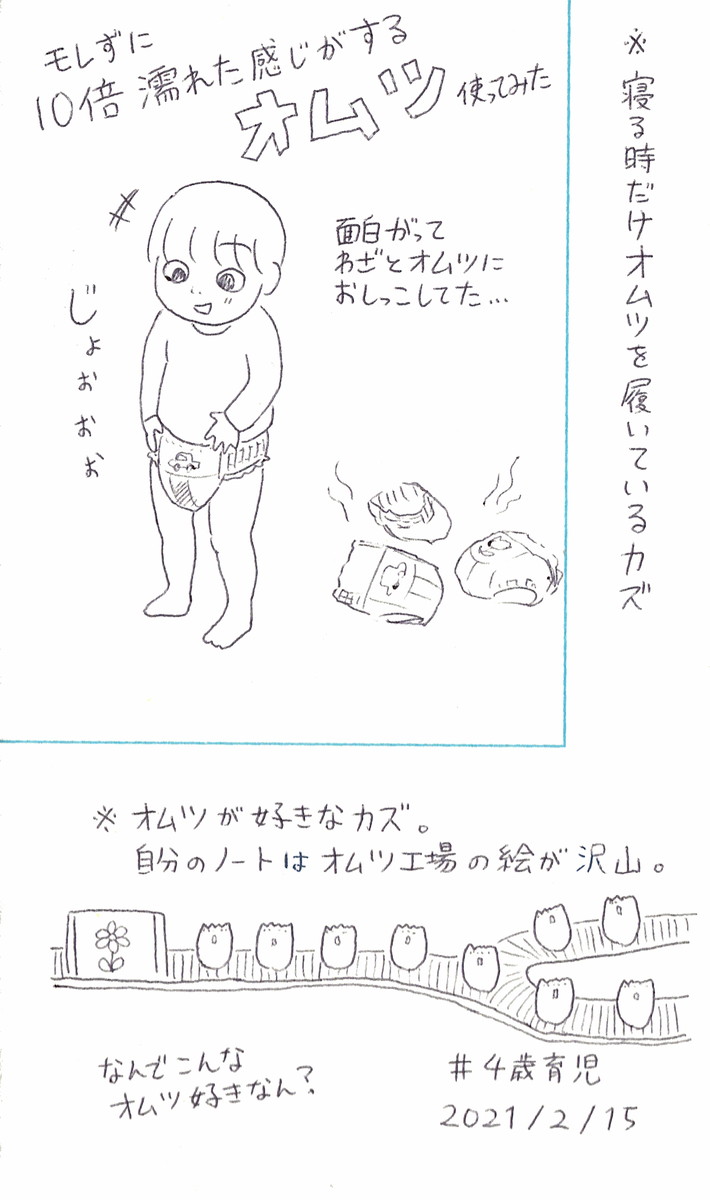 ※寝る時だけオムツを履いているカズ
モレずに
10倍濡れた感じがする
オムツ使ってみた
面白がって
わざとオムツに
おしっこしてた…
じょぉぉぉ
※オムツが好きなカズ。
自分のノートはオムツ工場の絵が沢山。
なんでこんな
オムツ好きなん？
#4歳育児
2021/2/15